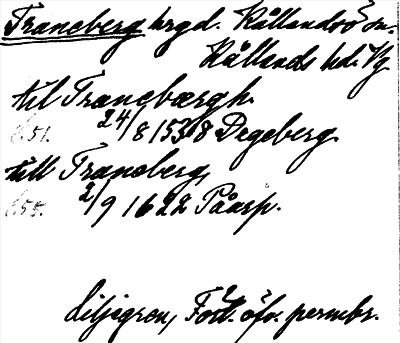 Traneberg hrgd. Kållandsö sn.
Kållands hd. Vg.
til Tranebærgh.
l.51. 24/8 1538 Degeberg.
till Traneberg,
l.55. 2/9 1622 Påarp.
Liljegren, Fört. öfv. permbr.